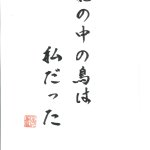 の中の鳥は
私だった